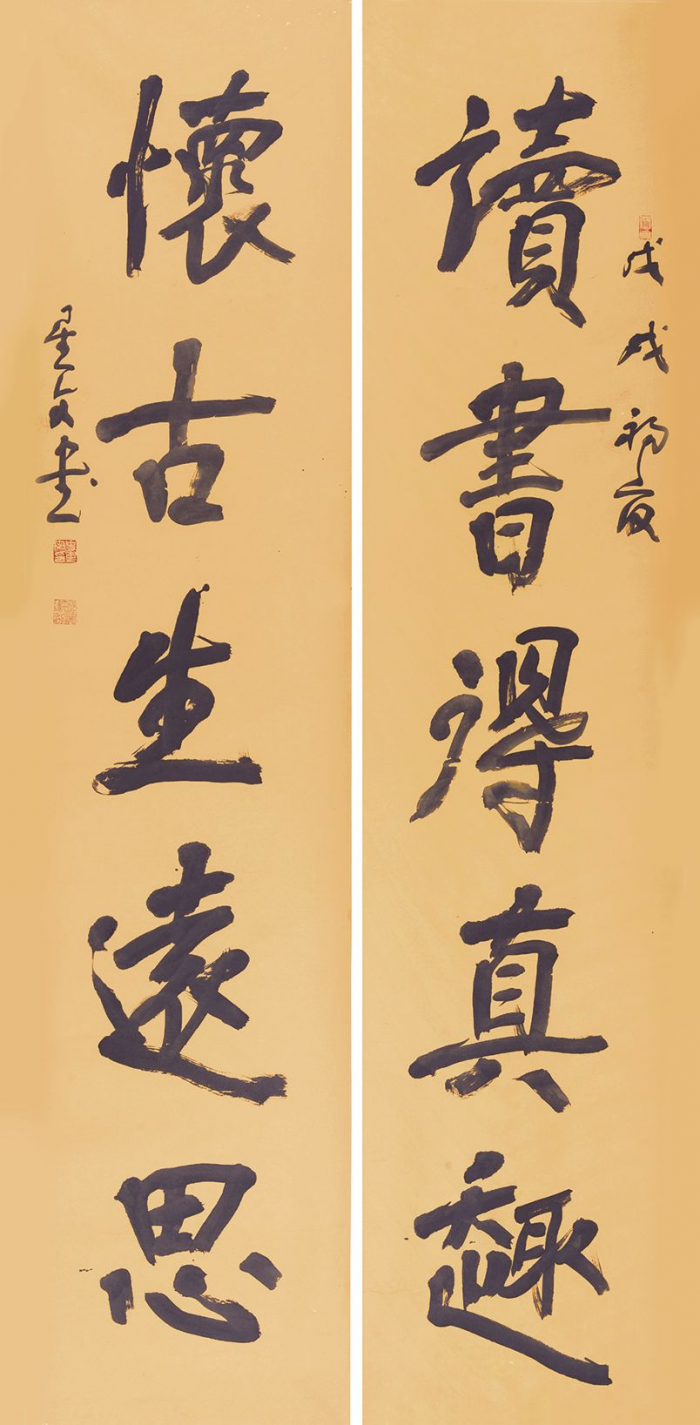 戊戌初夏
讀書得真趣
懷古生遠思
星文書